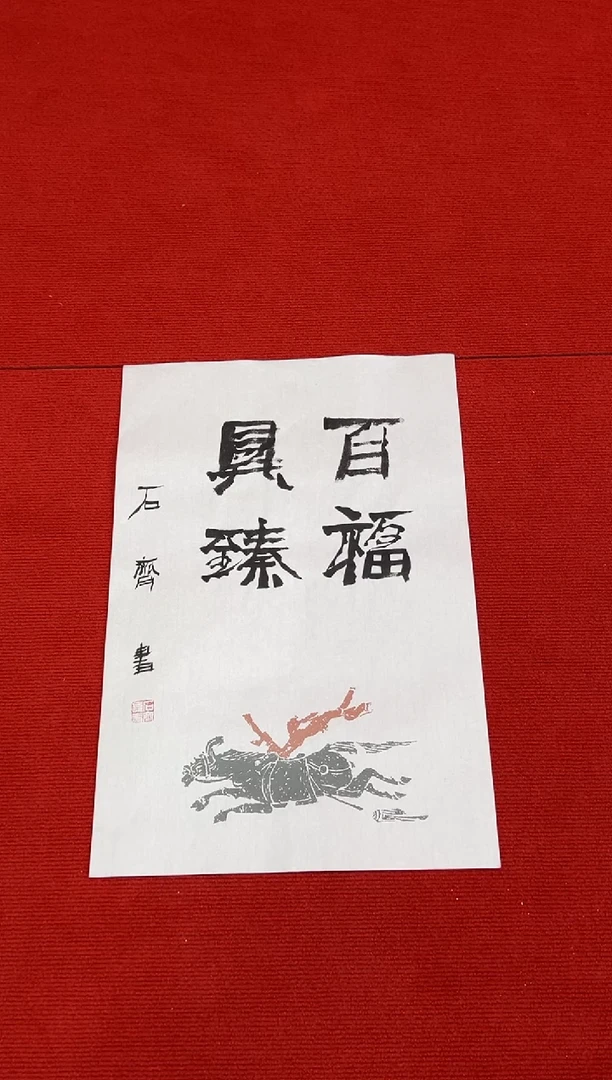 百福
具臻
石齊書